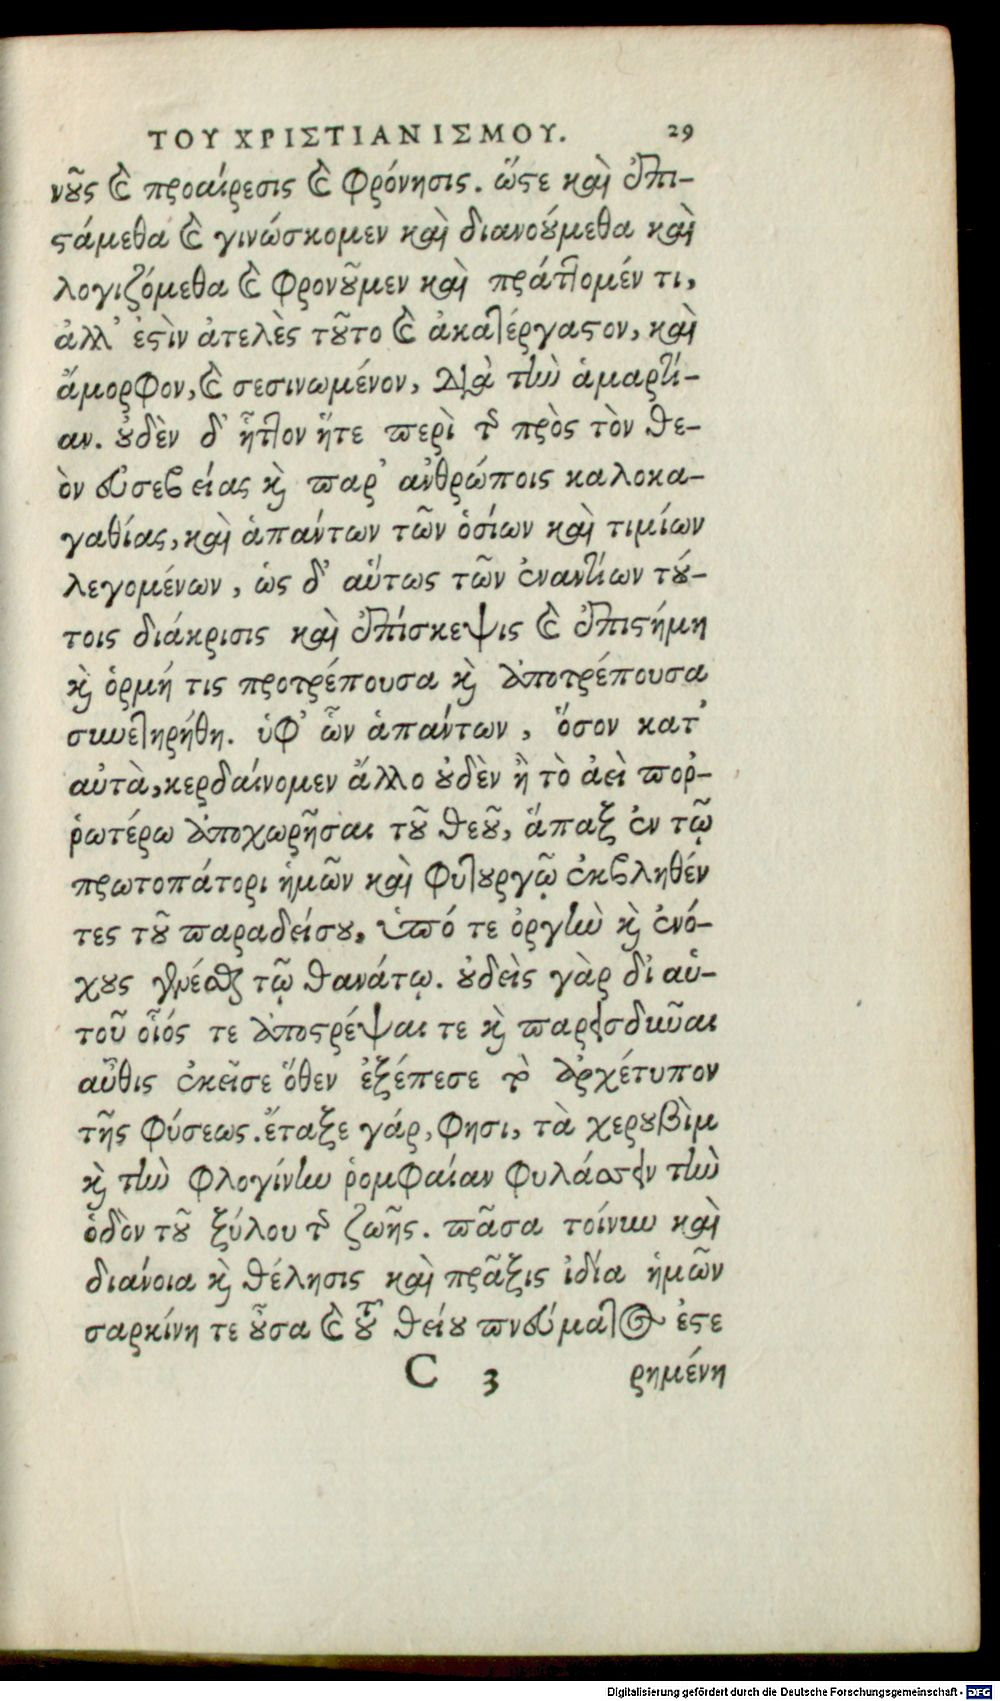 ΤΟΥ ΧΡΙΣΤΙΑΝΙΣΜΟΥ. 29
νοῦς καὶ προαίρεσις καὶ φρόνησις. ὥστε καὶ ἐπι-
στάμεθα καὶ γινώσκομεν καὶ διανούμεθα καὶ
λογιζόμεθα καὶ φρονοῦμεν καὶ πράττομέν τι,
ἀλλ' ἐστὶν ἀτελὲς τοῦτο καὶ ἀκατέργαστον, καὶ
ἄμορφον, καὶ σεσινωμένον, διὰ τὴν ἁμαρτί-
αν. οὐδὲν δ' ἧττον ἥτε περὶ τῆς πρὸς τὸν θε-
ὸν εὐσεβείας καὶ παρ' ἀνθρώποις καλοκα-
γαθίας, καὶ ἁπάντων τῶν ὁσίων καὶ τιμίων
λεγομένων, ὡς δ' αὕτως τῶν ἐναντίων τού-
τοις διάκρισις καὶ ἐπίσκεψις καὶ ἐπιστήμη
καὶ ὁρμή τις προτρέπουσα καὶ ἀποτρέπουσα
συνετηρήθη. ὑφ' ὧν ἁπάντων, ὅσον κατ'
αὐτὰ, κερδαίνομεν ἄλλο οὐδὲν ἢ τὸ ἀεὶ πορ-
ρωτέρω ἀποχωρῆσαι τοῦ θεοῦ, ἅπαξ ἐν τῷ
πρωτοπάτορι ἡμῶν καὶ φυτουργῷ ἐκβληθέν
τες τοῦ παραδείσου, ὑπό τε ὀργὴν καὶ ἐνό-
χους γενέσθαι τῷ θανάτῳ. οὐδεὶς γὰρ δι αὑ-
τοῦ οἷός τε ἀποστρέψαι τε καὶ παρεισδῦναι
αὖθις ἐκεῖσε ὅθεν ἐξέπεσε τὸ ἀρχέτυπον
τῆς φύσεως. ἔταξε γάρ, φησι, τὰ χερουβὶμ
καὶ τὴν φλογίνην ῥομφαίαν φυλάσσειν τὴν
ὁδὸν τοῦ ξύλου τῆς ζωῆς. πᾶσα τοίνυν καὶ
διάνοια καὶ θέλησις καὶ πρᾶξις ἰδία ἡμῶν
σαρκίνη τε οὖσα καὶ τοῦ θείου πνεύματος ἐστε
C 3 ρημένη
Digitalisierung gefördert durch die Deutsche Forschungsgemeinschaft - DFG